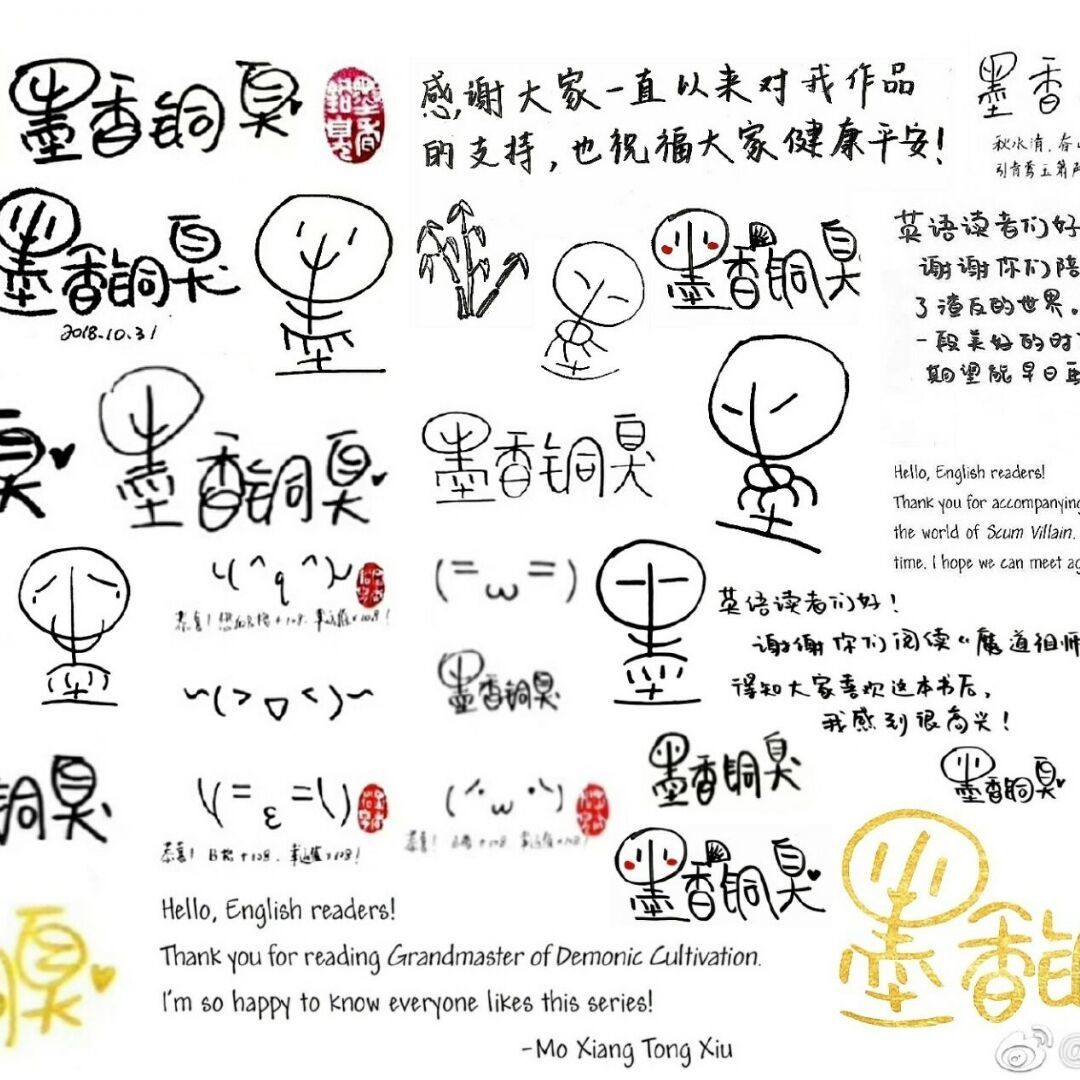 墨香铜臭
感谢大家一直以来对我作品
的支持，也祝福大家健康平安！
墨香
秋水清，春山
墨香铜臭
2018.10.31
墨
墨
墨香铜臭
英语读者们好
谢谢你们陪
了渣反的世界。
一段美好的时
期望能早日再
臭
墨香铜臭
墨香铜臭
墨
Hello, English readers!
Thank you for accompanying
the world of Scum Villain.
time. I hope we can meet ag
墨
ヽ(^q^)ゝ
(=ω=)
墨
英语读者们好！
谢谢你们阅读《魔道祖师
得知大家喜欢这本书后，
我感到很高兴！
~(>▽<)~
墨香铜臭
铜臭
\(=ε=\)
墨香铜臭
墨香铜臭
恭喜！B格+108，幸运值+108！
墨香铜臭
Hello, English readers!
Thank you for reading Grandmaster of Demonic Cultivation.
I'm so happy to know everyone likes this series!
-Mo Xiang Tong Xiu
臭
墨香铜
@